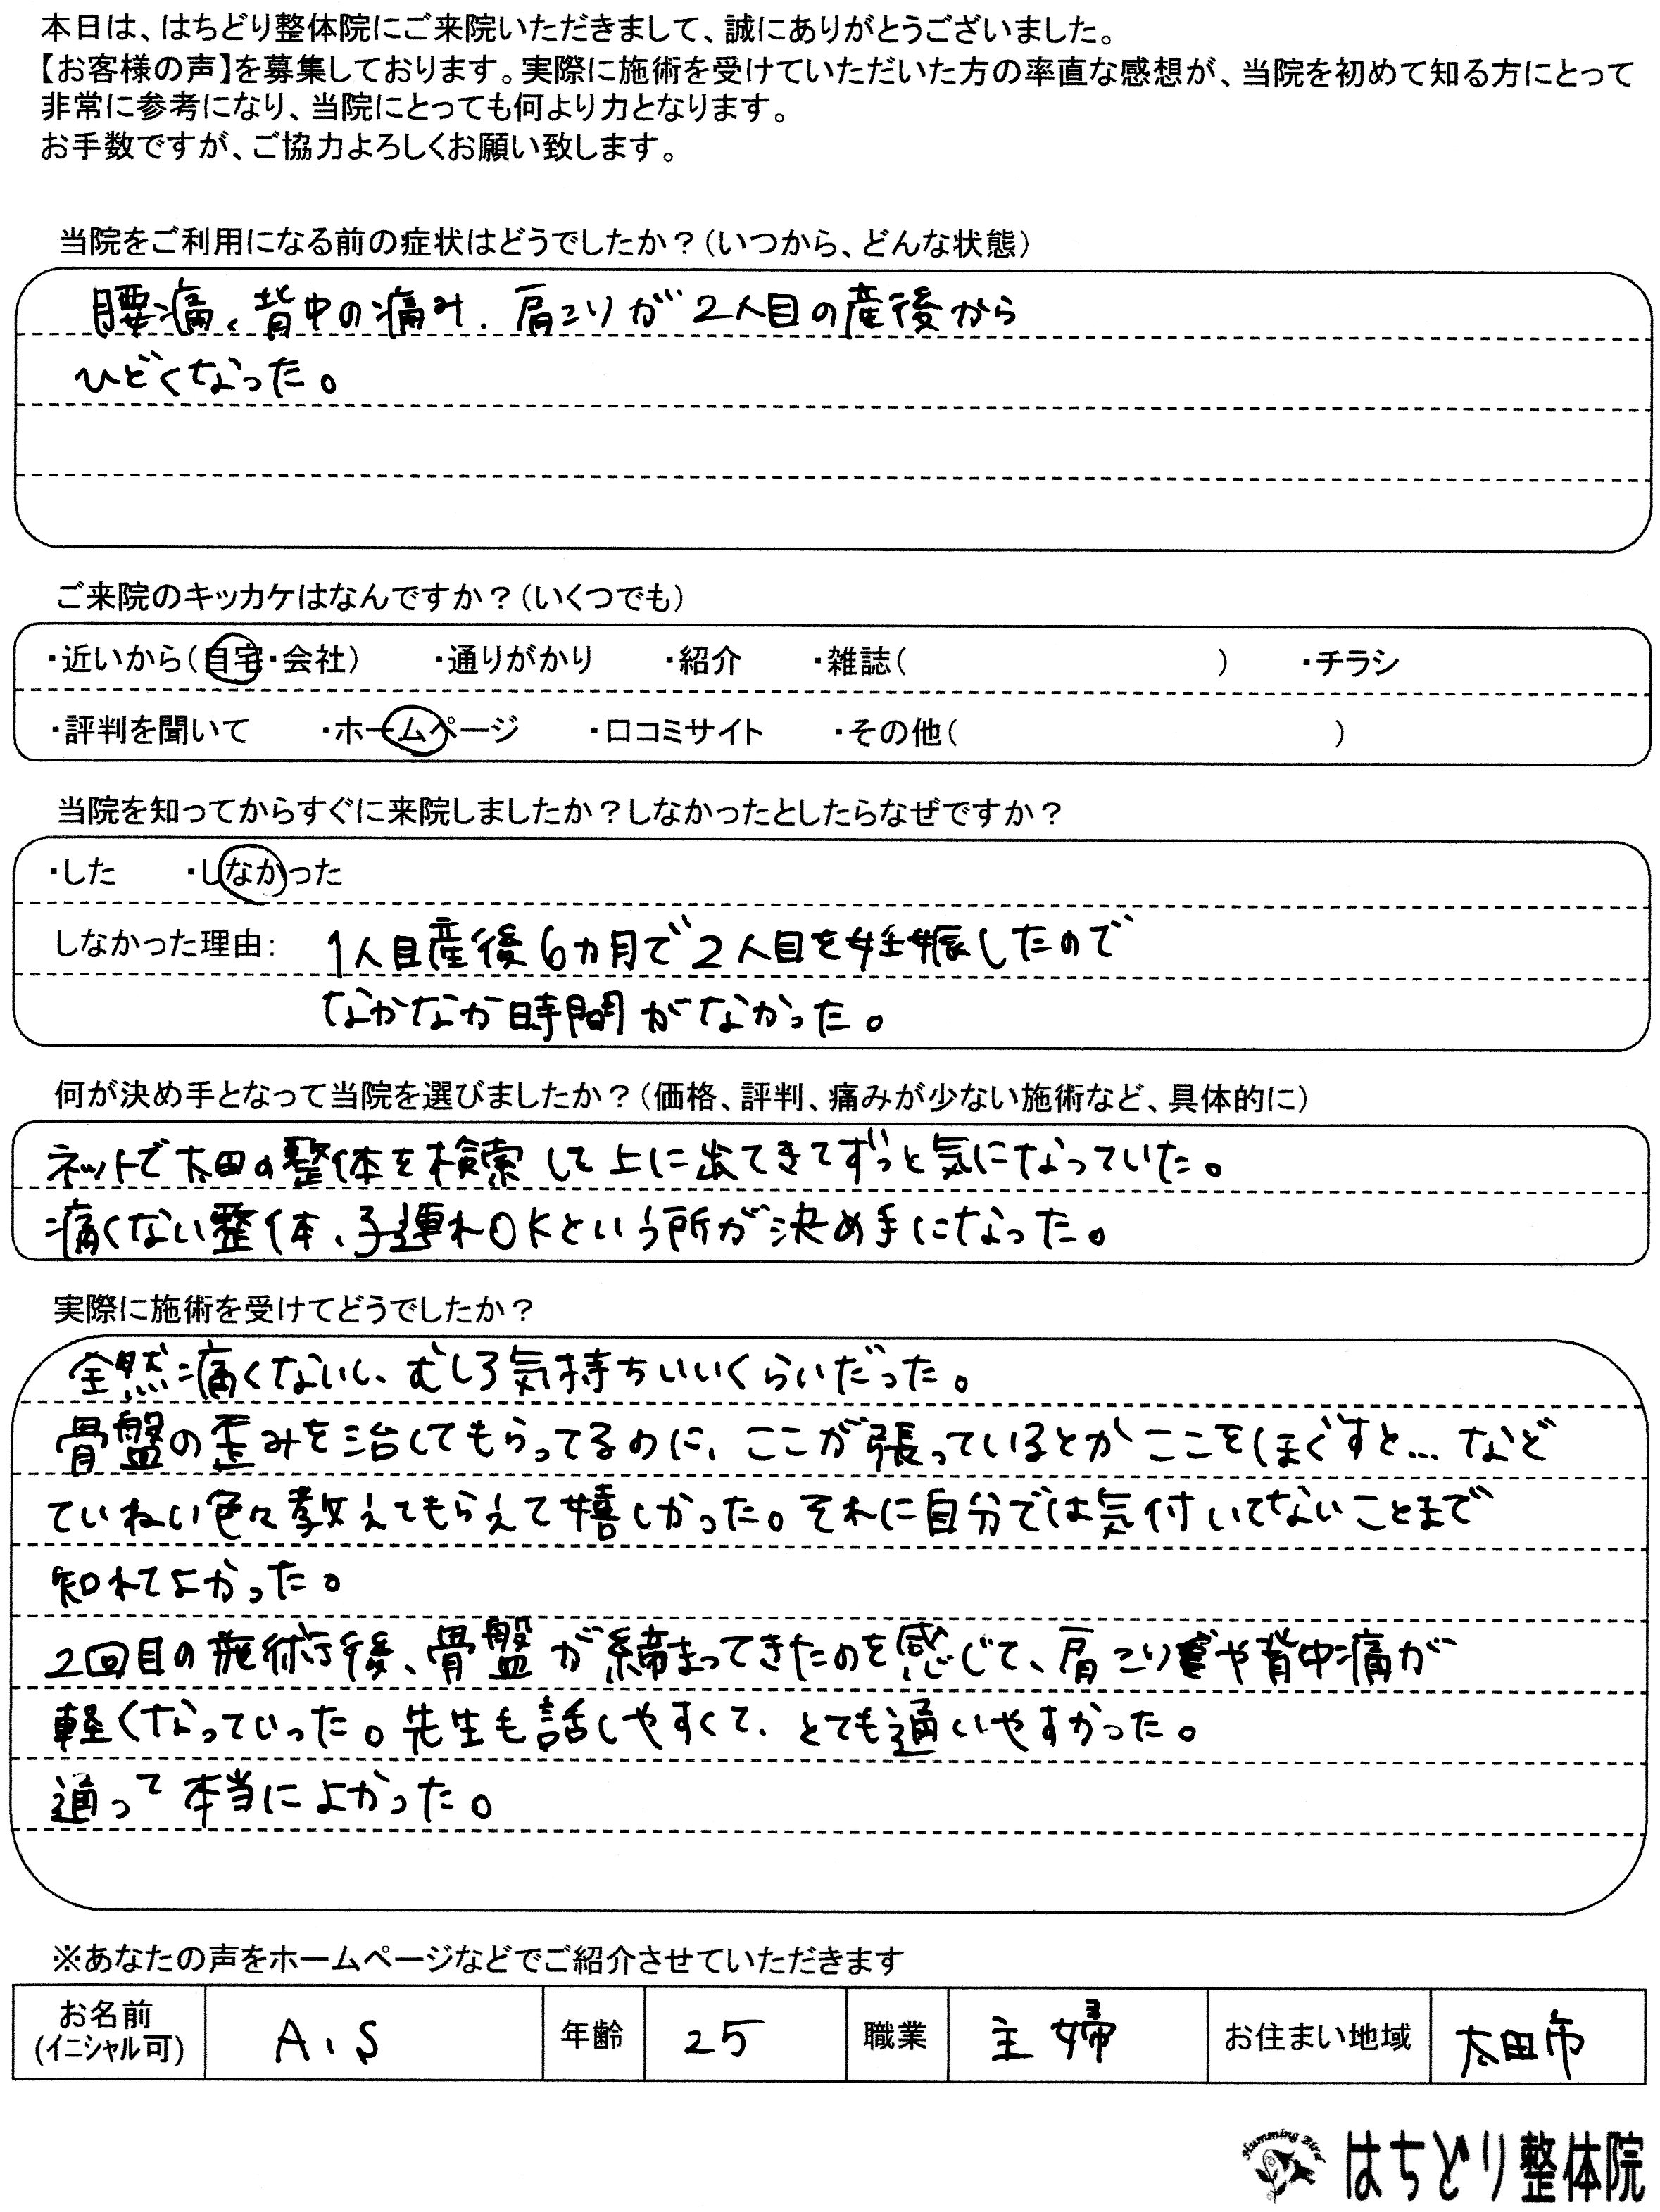 本日は、はちどり整体院にご来院いただきまして、誠にありがとうございました。
【お客様の声】を募集しております。実際に施術を受けていただいた方の率直な感想が、当院を初めて知る方にとって
非常に参考になり、当院にとっても何より力となります。
お手数ですが、ご協力よろしくお願い致します。
当院をご利用になる前の症状はどうでしたか？（いつから、どんな状態）
腰痛、背中の痛み、肩こりが2人目の産後から
ひどくなった。
ご来院のキッカケはなんですか？（いくつでも）
・近いから（自宅・会社） ・通りがかり ・紹介 ・雑誌（ ） ・チラシ
・評判を聞いて ・ホームページ ・口コミサイト ・その他（ ）
当院を知ってからすぐに来院しましたか？しなかったとしたらなぜですか？
・した ・しなかった
しなかった理由： 1人目産後6カ月で2人目を妊娠したので
なかなか時間がなかった。
何が決め手となって当院を選びましたか？（価格、評判、痛みが少ない施術など、具体的に）
ネットで太田の整体を検索して上に出てきてずっと気になっていた。
痛くない整体、子連れOKという所が決め手になった。
実際に施術を受けてどうでしたか？
全然痛くないし、むしろ気持ちいいくらいだった。
骨盤の歪みを治してもらってるのに、ここが張っているとかここをほぐすと…など
ていねい色々教えてもらえて嬉しかった。それに自分では気付いてないことまで
知れてよかった。
2回目の施術後、骨盤が締まってきたのを感じて、肩こりや背中痛が
軽くなっていった。先生も話しやすくて、とても通いやすかった。
通って本当によかった。
※あなたの声をホームページなどでご紹介させていただきます
お名前 (イニシャル可) A、S 年齢 25 職業 主婦 お住まい地域 太田市
Humming Bird はちどり整体院